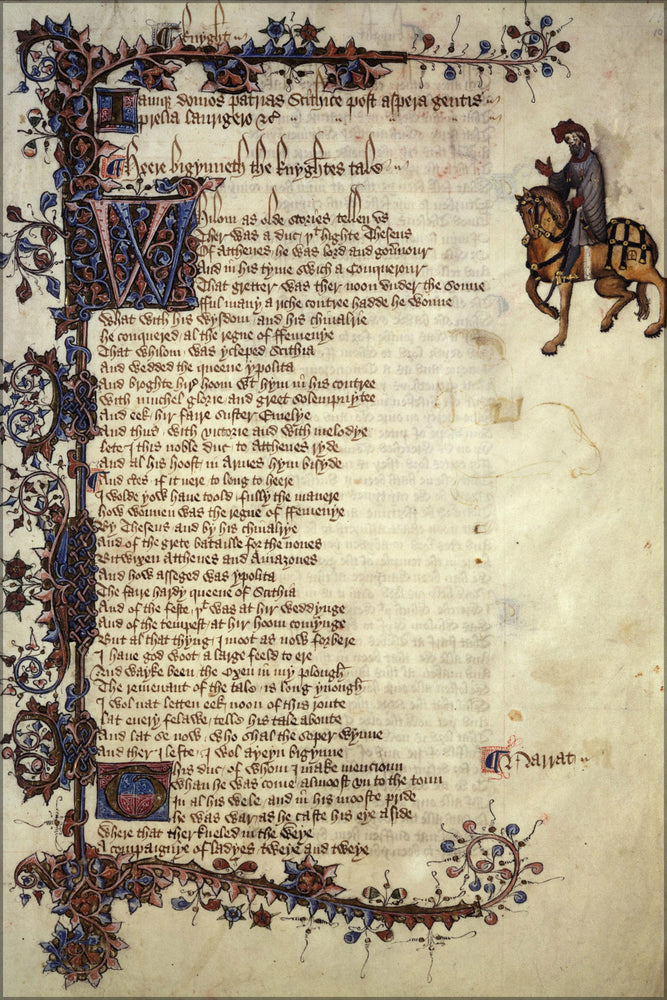 Knyght
Iamque domos patrias Scithice post aspera gentis
prelia laurigero &c
Heere bigynneth the knyghtes tale
Whilom as olde stories tellen us
Ther was a duc þt highte Theseus
Of Atthenes he was lord and gouernour
And in his tyme swich a Conquerour
That gretter was ther noon under the sonne
fful many a riche contree hadde he wonne
What with his wysdom and his chiualrie
he conquered al the regne of ffemenye
That whilom was ycleped Scithia
and wedded the queene ypolita
And broghte hir hoom wt hym in his contree
With muchel glorie and greet solempnytee
And eek hir faire suster Emelye
And thus with victorie and with melodye
lete I this noble duc to Atthenes ryde
And al his hoost in Armes hym bisyde
And certes if it nere to long to heere
I wolde yow haue toold fully the manere
how wonnen was the regne of ffemenye
By Theseus and by his chiualrye
And of the grete bataille for the nones
Bitwixen Atthenes and Amazones
And how asseged was ypolita
The faire hardy queene of Scithia
And of the feste þt was at hir weddynge
And of the tempest at hir hoom comynge
But al that thyng I moot as now forbere
I haue god woot a large feeld to ere
And wayke been the oxen in my plough
The remenant of the tale is long ynough
I wol nat letten eek noon of this route
lat euery felawe telle his tale aboute
And lat se now who shal the soper wynne
And ther I lefte I wol ayeyn bigynne
This duc of whom I make mencioun
Whan he was come almoost vn to the toun
In al his wele and in his mooste pride
he was war as he caste his eye aside
Where that ther kneled in the weye
A compaignye of ladyes tweye and tweye
Narrat